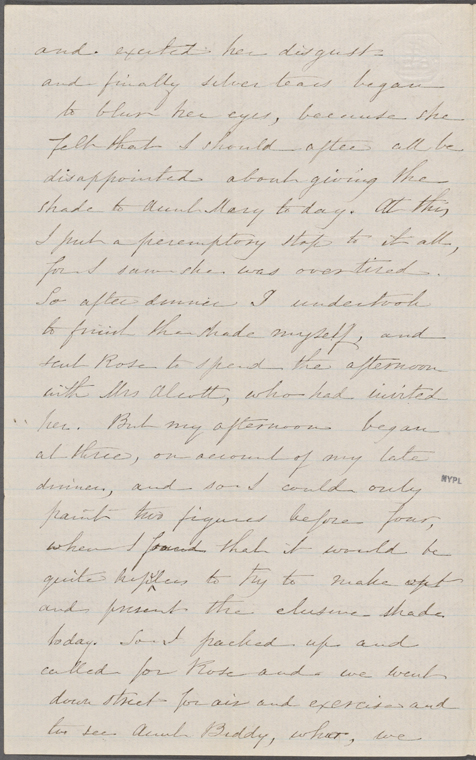 and excited her disgust
and finally silver tears began
to blur her eyes, because she
felt that I should after all be
disappointed about giving the
shade to Aunt Mary today. At this
I put a peremptory stop to it all,
for I saw she was over tired.
So after dinner I undertook
to finish the shade myself, and
sent Rose to spend the afternoon
with Mrs Alcott, who had invited
her. But my afternoon began
at three, on account of my late
dinner, and so I could only
paint two figures before four,
when I found that it would be
quite hopeless to try to make
and present the elusive shade
today. So I packed up and
called for Rose and we went
down street for air and exercise and
to see Aunt Biddy, who, we
NYPL